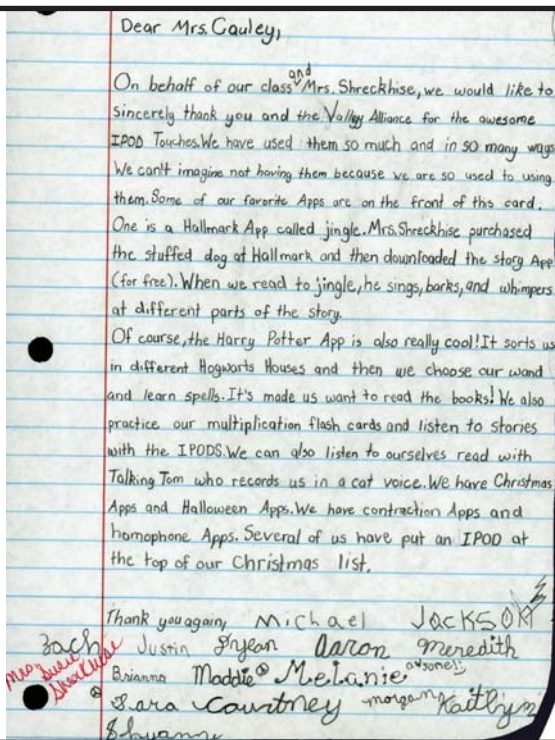 Dear Mrs. Cauley,
On behalf of our class and Mrs. Shreckhise, we would like to
sincerely thank you and the Valley Alliance for the awesome
IPOD Touches. We have used them so much and in so many ways
We can't imagine not having them because we are so used to using
them. Some of our favorite Apps are on the front of this card.
One is a Hallmark App called jingle. Mrs. Shreckhise purchased
the stuffed dog at Hallmark and then downloaded the story App
(for free). When we read to jingle, he sings, barks, and whimpers
at different parts of the story.
Of course, the Harry Potter App is also really cool! It sorts us
in different Hogwarts Houses and then we choose our wand
and learn spells. It's made us want to read the books! We also
practice our multiplication flash cards and listen to stories
with the IPODS. We can also listen to ourselves read with
Talking Tom who records us in a cat voice. We have Christmas
Apps and Halloween Apps. We have contraction Apps and
homophone Apps. Several of us have put an IPOD at
the top of our Christmas list.
Thank you again, Michael JACKSON
Zach Justin Aaron meredith
Mrs. Susie Shreckhise
Brianna Maddie Melanie awsome!!
Sara Courtney morgan Kaitlyn
Shyanne